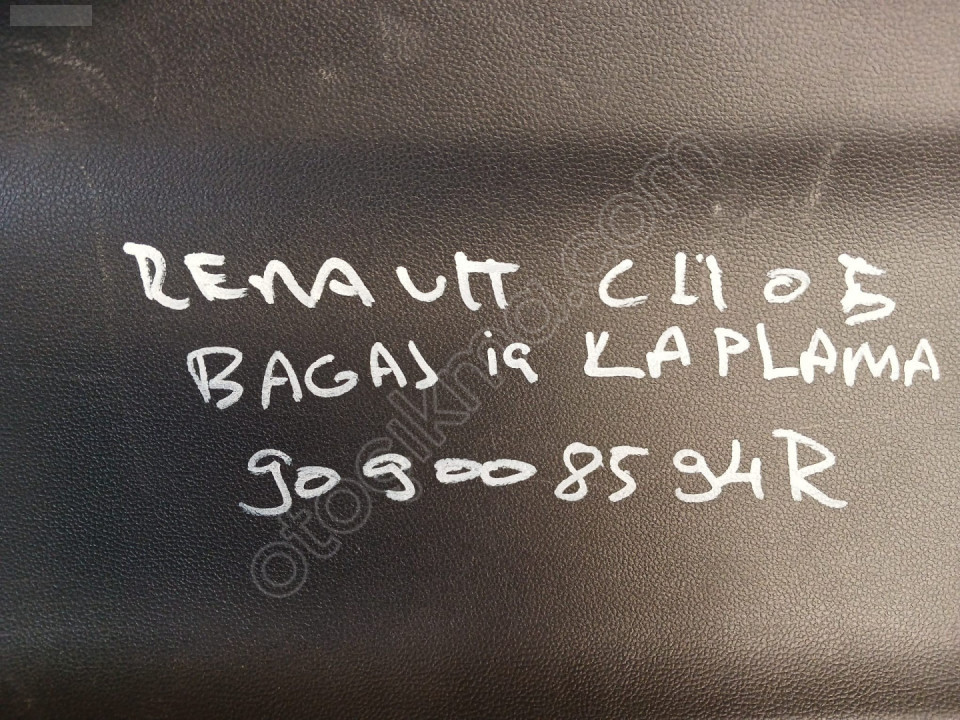 RENAULT CLİO 5
BAGAJ iç KAPLAMA
909008594R
otocikmo.com